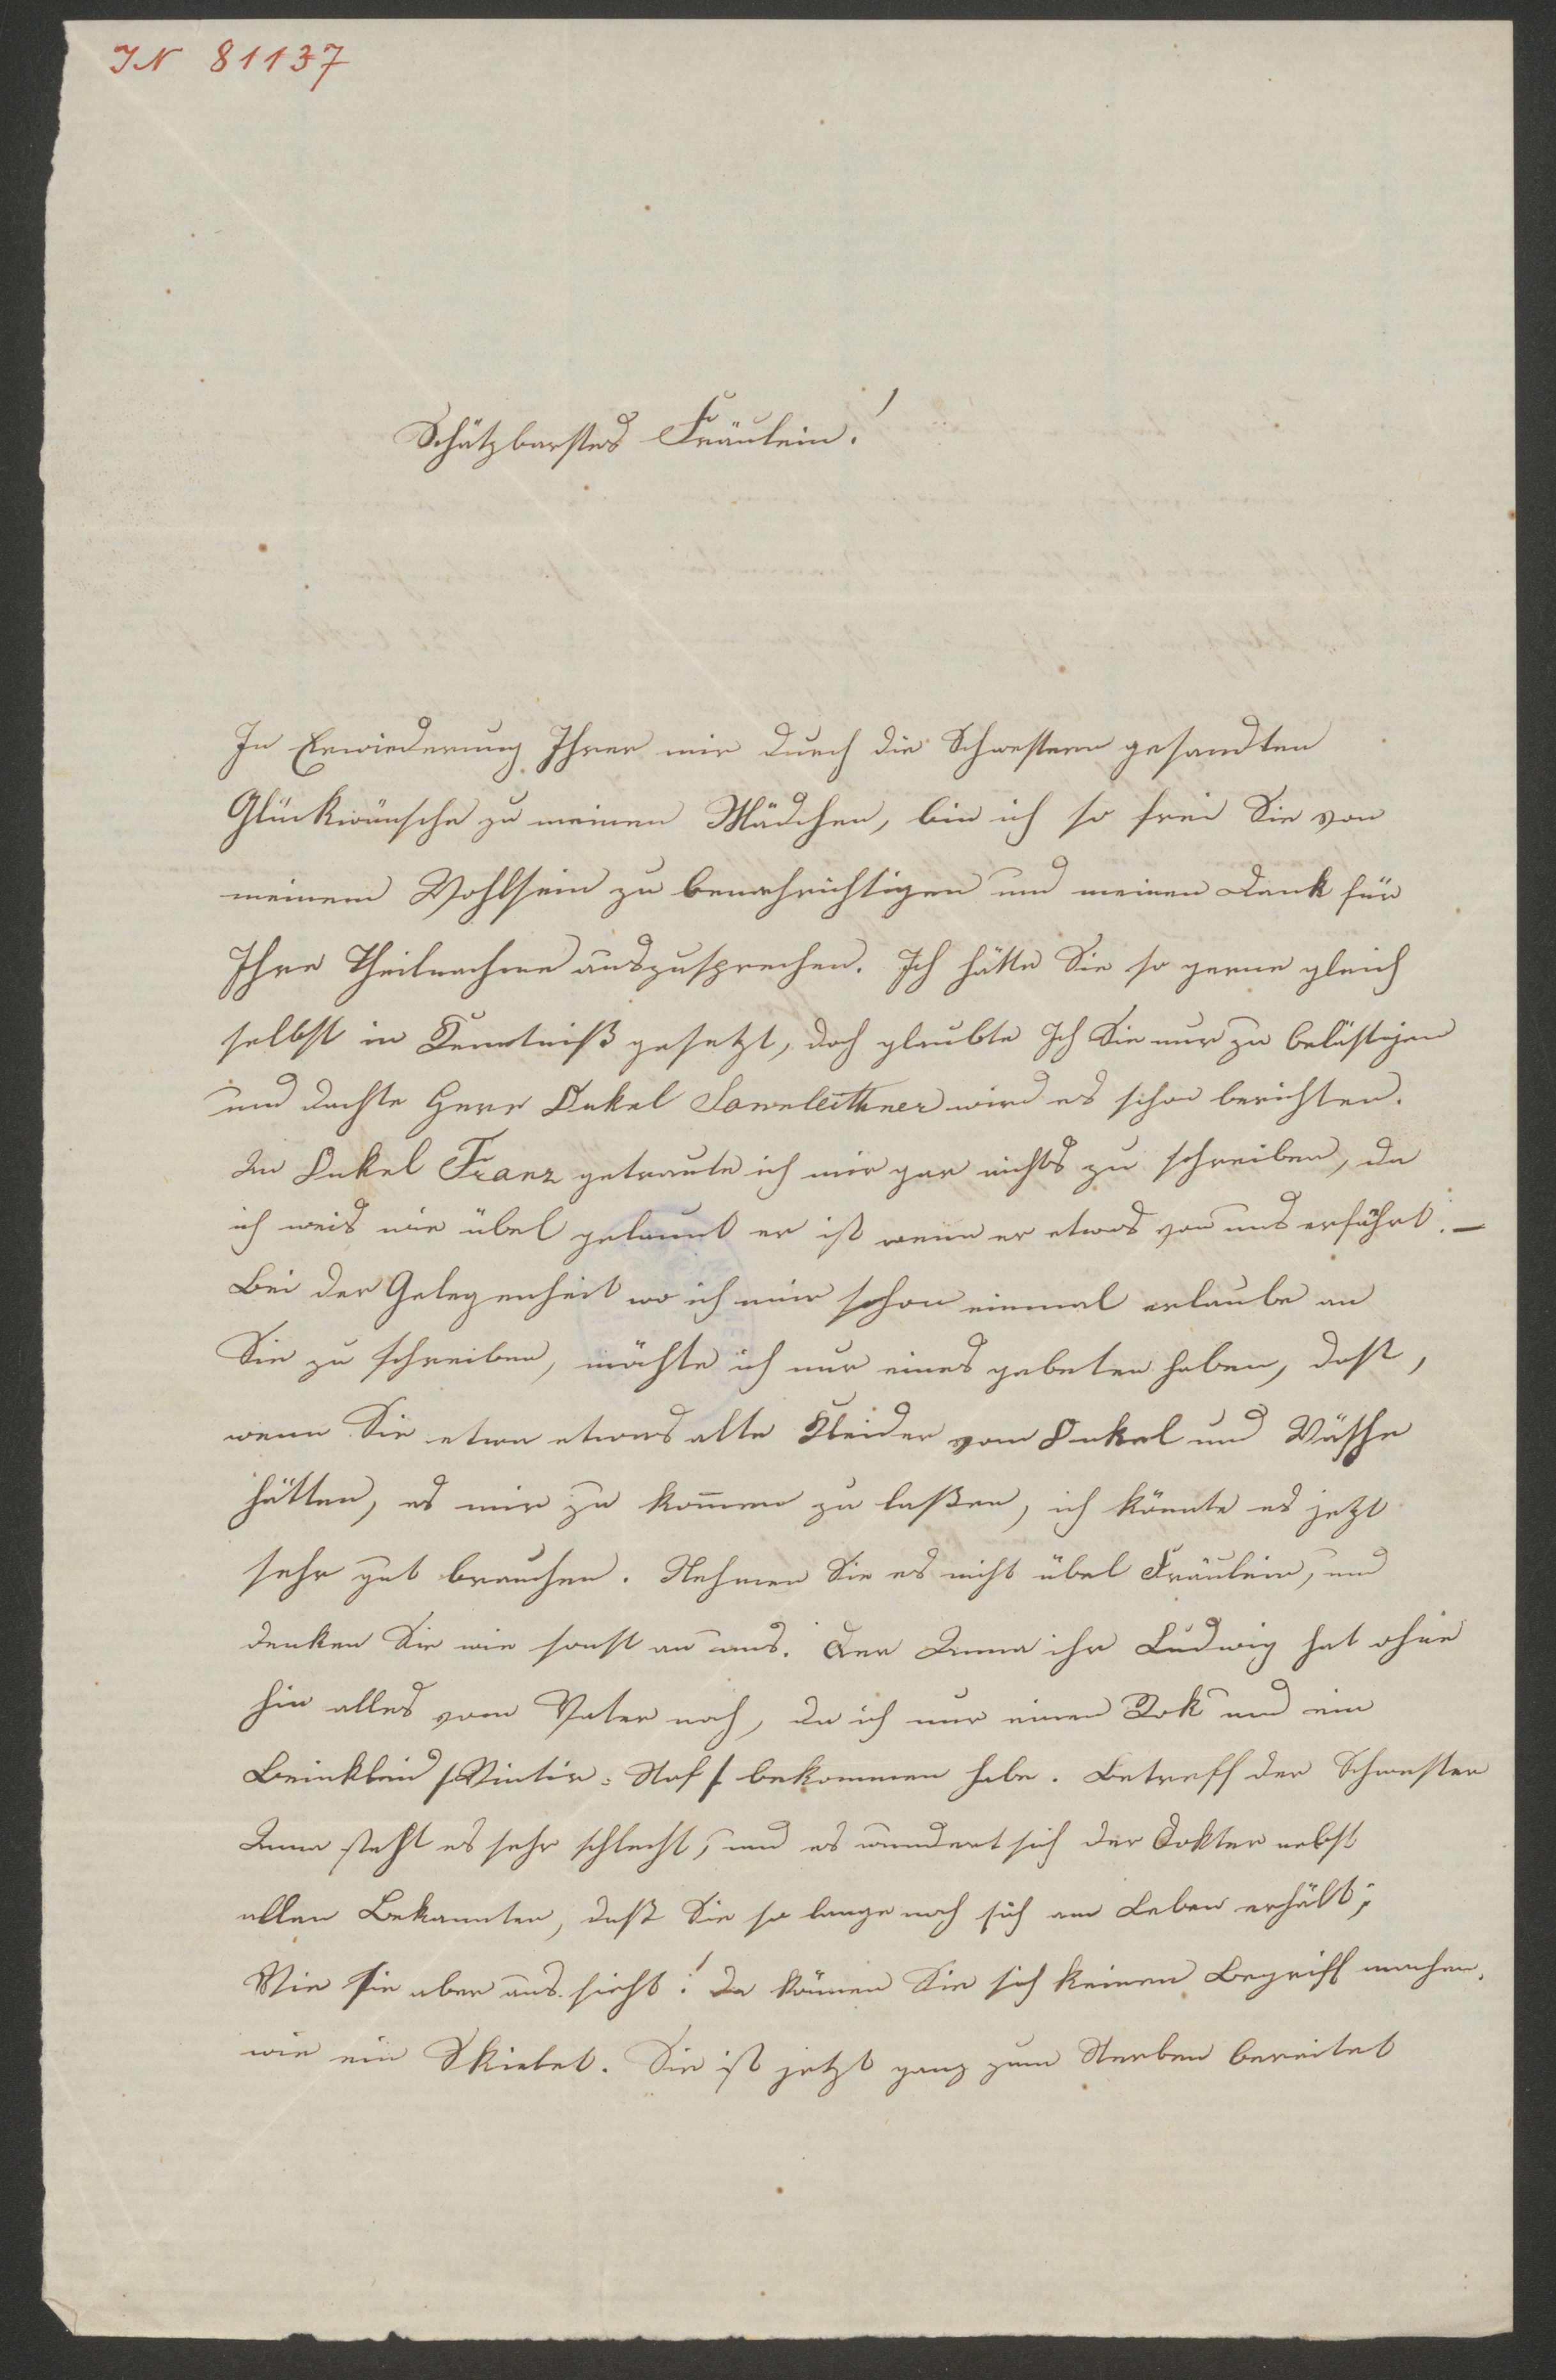 IN 81137
Schätzbarstes Fräulein!
In Erwiederung Ihrer mir durch die Schwestern gesandten
Glückwünsche zu meinen Mädchen, bin ich so frei Sie von
meinem Wohlsein zu benachrichtigen und meinen Dank für
Ihre Theilnahme auszusprechen. Ich hätte Sie so gerne gleich
selbst in Kenntniß gesetzt, doch glaubte Ich Sie nur zu belästigen
und dachte Herr Onkel Sonnleithner wird es schon berichten.
An Onkel Franz getraute ich mir gar nichts zu schreiben, da
ich weis wie übel gelaunt er ist wenn er etwas von uns erfährt. —
Bei der Gelegenheit wo ich mir schon einmal erlaube an
Sie zu schreiben, möchte ich nur eines gebeten haben, daß,
wenn Sie etwa etwas alte Kleider vom Onkel und Wäsche
hätten, es mir zu kommen zu laßen, ich könnte es jetzt
sehr gut brauchen. Nehmen Sie es nicht übel Fräulein, und
denken Sie wie sonst an uns. Der Anna ihr Ludwig hat ohne
hin alles vom Vater noch, da ich nur einen Rok und ein
Beinkleid /: Winter-Stof :/ bekommen habe. Betreff der Schwester
Anna steht es sehr schlecht, und es wundert sich der Dokter nebst
allen Bekannten, daß Sie so lange noch sich am Leben erhält;
Wie sie aber aus sieht! Da können Sie sich keinen Begriff machen,
wie ein Skielet. Sie ist jetzt ganz zum Sterben bereitet